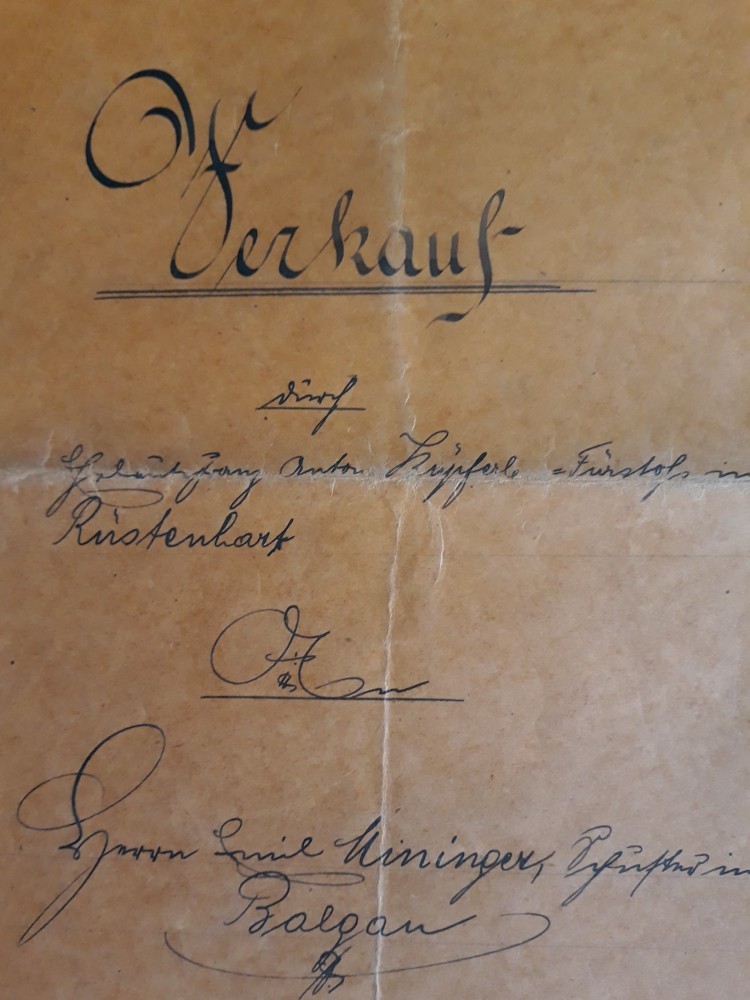 Verkauf
durch
Eheleute Franz Anton Küpferle =Fürstoß in
Rüstenhart
An
Herrn Emil Mininger, Schuster in
Balgau